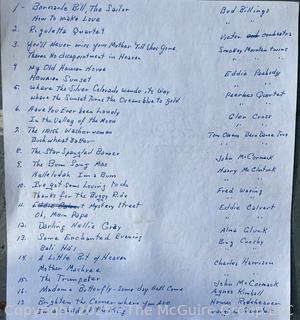 1 - Barnacle Bill, The Sailor Bud Billings
How to make Love "
2. Rigoletto Quartet Victor Orchestra
3. You'll Never miss your Mother Till She's Gone Smokey Mountain Twins
There's No disappointment in Heaven " "
4 My Old Hawaiian House Eddie Peabody
Hawaiian Sunset " "
5. where the Silver Colorado wends its Way Peerless Quartet
where the Sunset Turns the Ocean's blue to Gold " "
6. Have You Ever been Lonely Glen Cross
In the Valley of the Moon " "
7. The Irish Washerwoman Tom Owens
Durkweat Batter " "
8. The Star Spangled Banner John McCormack
9. The Bum Song Mac Harry McClintock
Hallelujah I'm a Bum " "
10. I've got Some Loving to do Fred Waring
Thanks for the Buggy Ride " "
11. Mystery Street Eddie Calvert
Oh, Mein Papa " "
12. Darling Nellie Gray Alma Gluck
13. Some Enchanted Evening Bing Crosby
Bali Ha'i " "
14. A Little Bit of Heaven Charles Harrison
Mother Machree " "
15. The Trumpeter John McCormack
16. Madame Butterfly - Some day He'll Come Agnes Kimball
17. Brighten the Corner where You Are Homer Rodeheaver